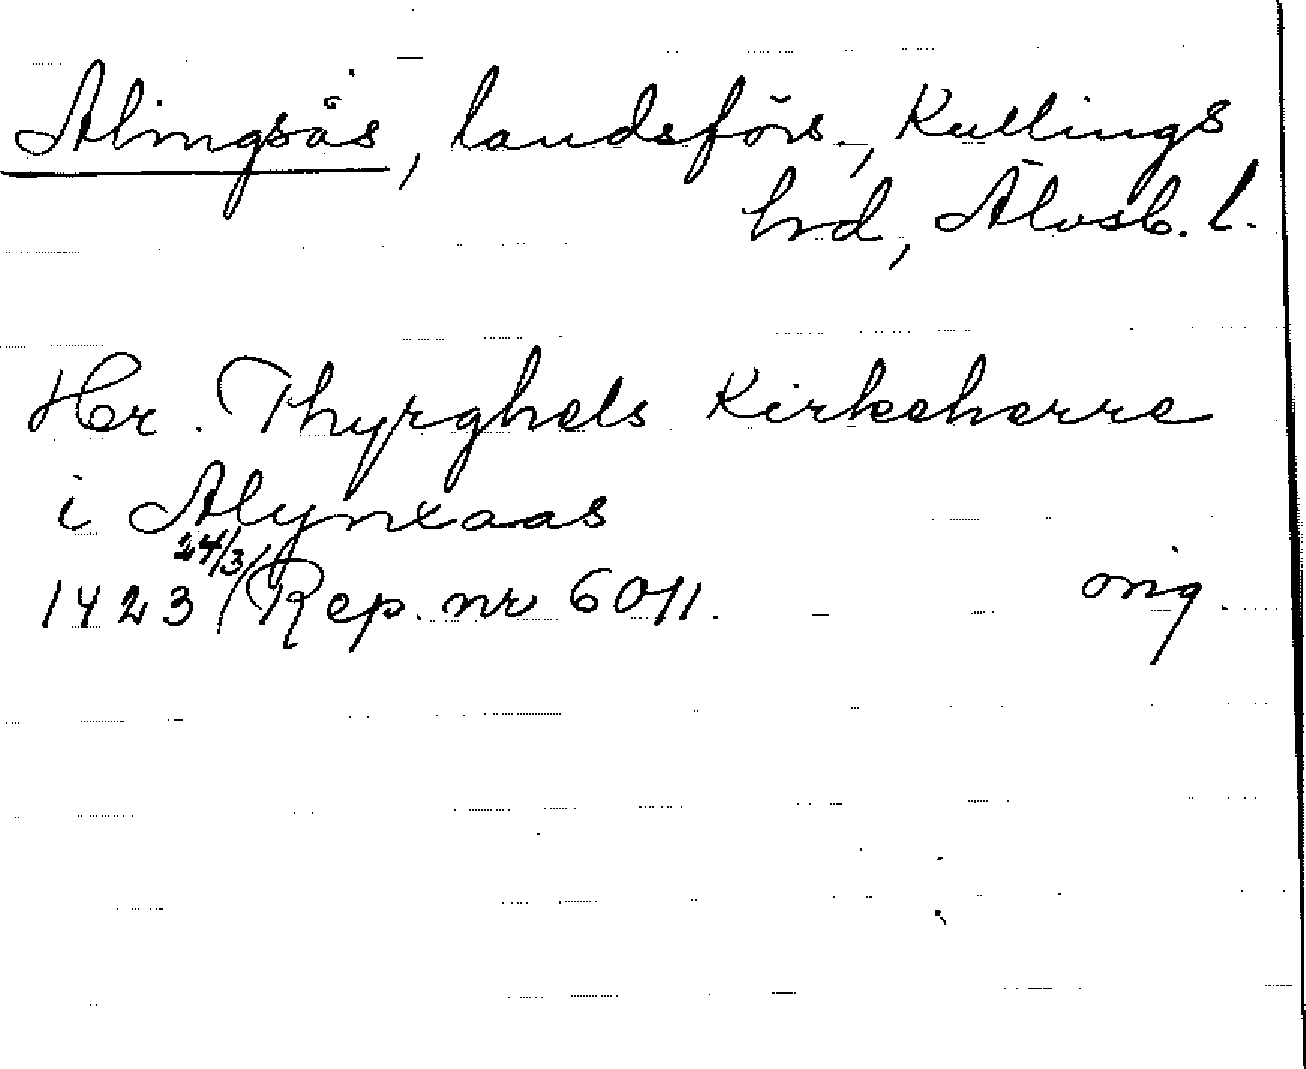 Alingsås, landsförs., Kullings
hrd, Älvsb. l.
Hr. Thyrghels Kirkeherre
i Alynxaas
1423 24/3 Rep. nr 6011. orig.